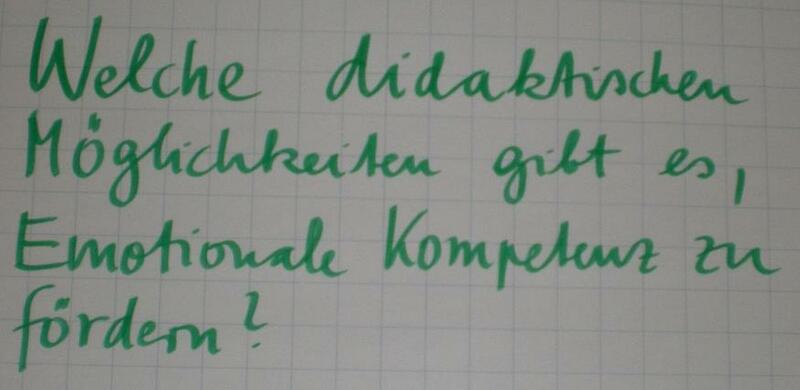 Welche didaktischen
Möglichkeiten gibt es,
Emotionale Kompetenz zu
fördern?